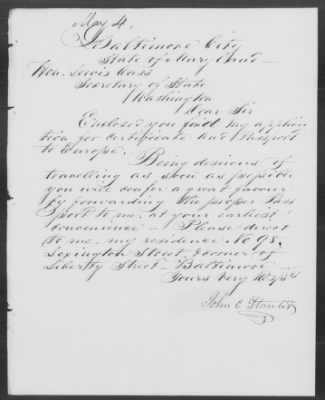 May 4.
Baltimore City
State of Maryland
Hon. Lewis Cass
Secretary of State
Washington
Dear Sir
Enclosed you find my applica
tion for Certificate and Passport
to Europe. Being desirous of
travelling as soon as possible
you will confer a great favour
by forwarding the proper Pass
port to me, at your earliest
convenience. Please direct
to me, my residence No 98.
Lexington Street, Corner of
Liberty Street Baltimore
Yours Very
John C